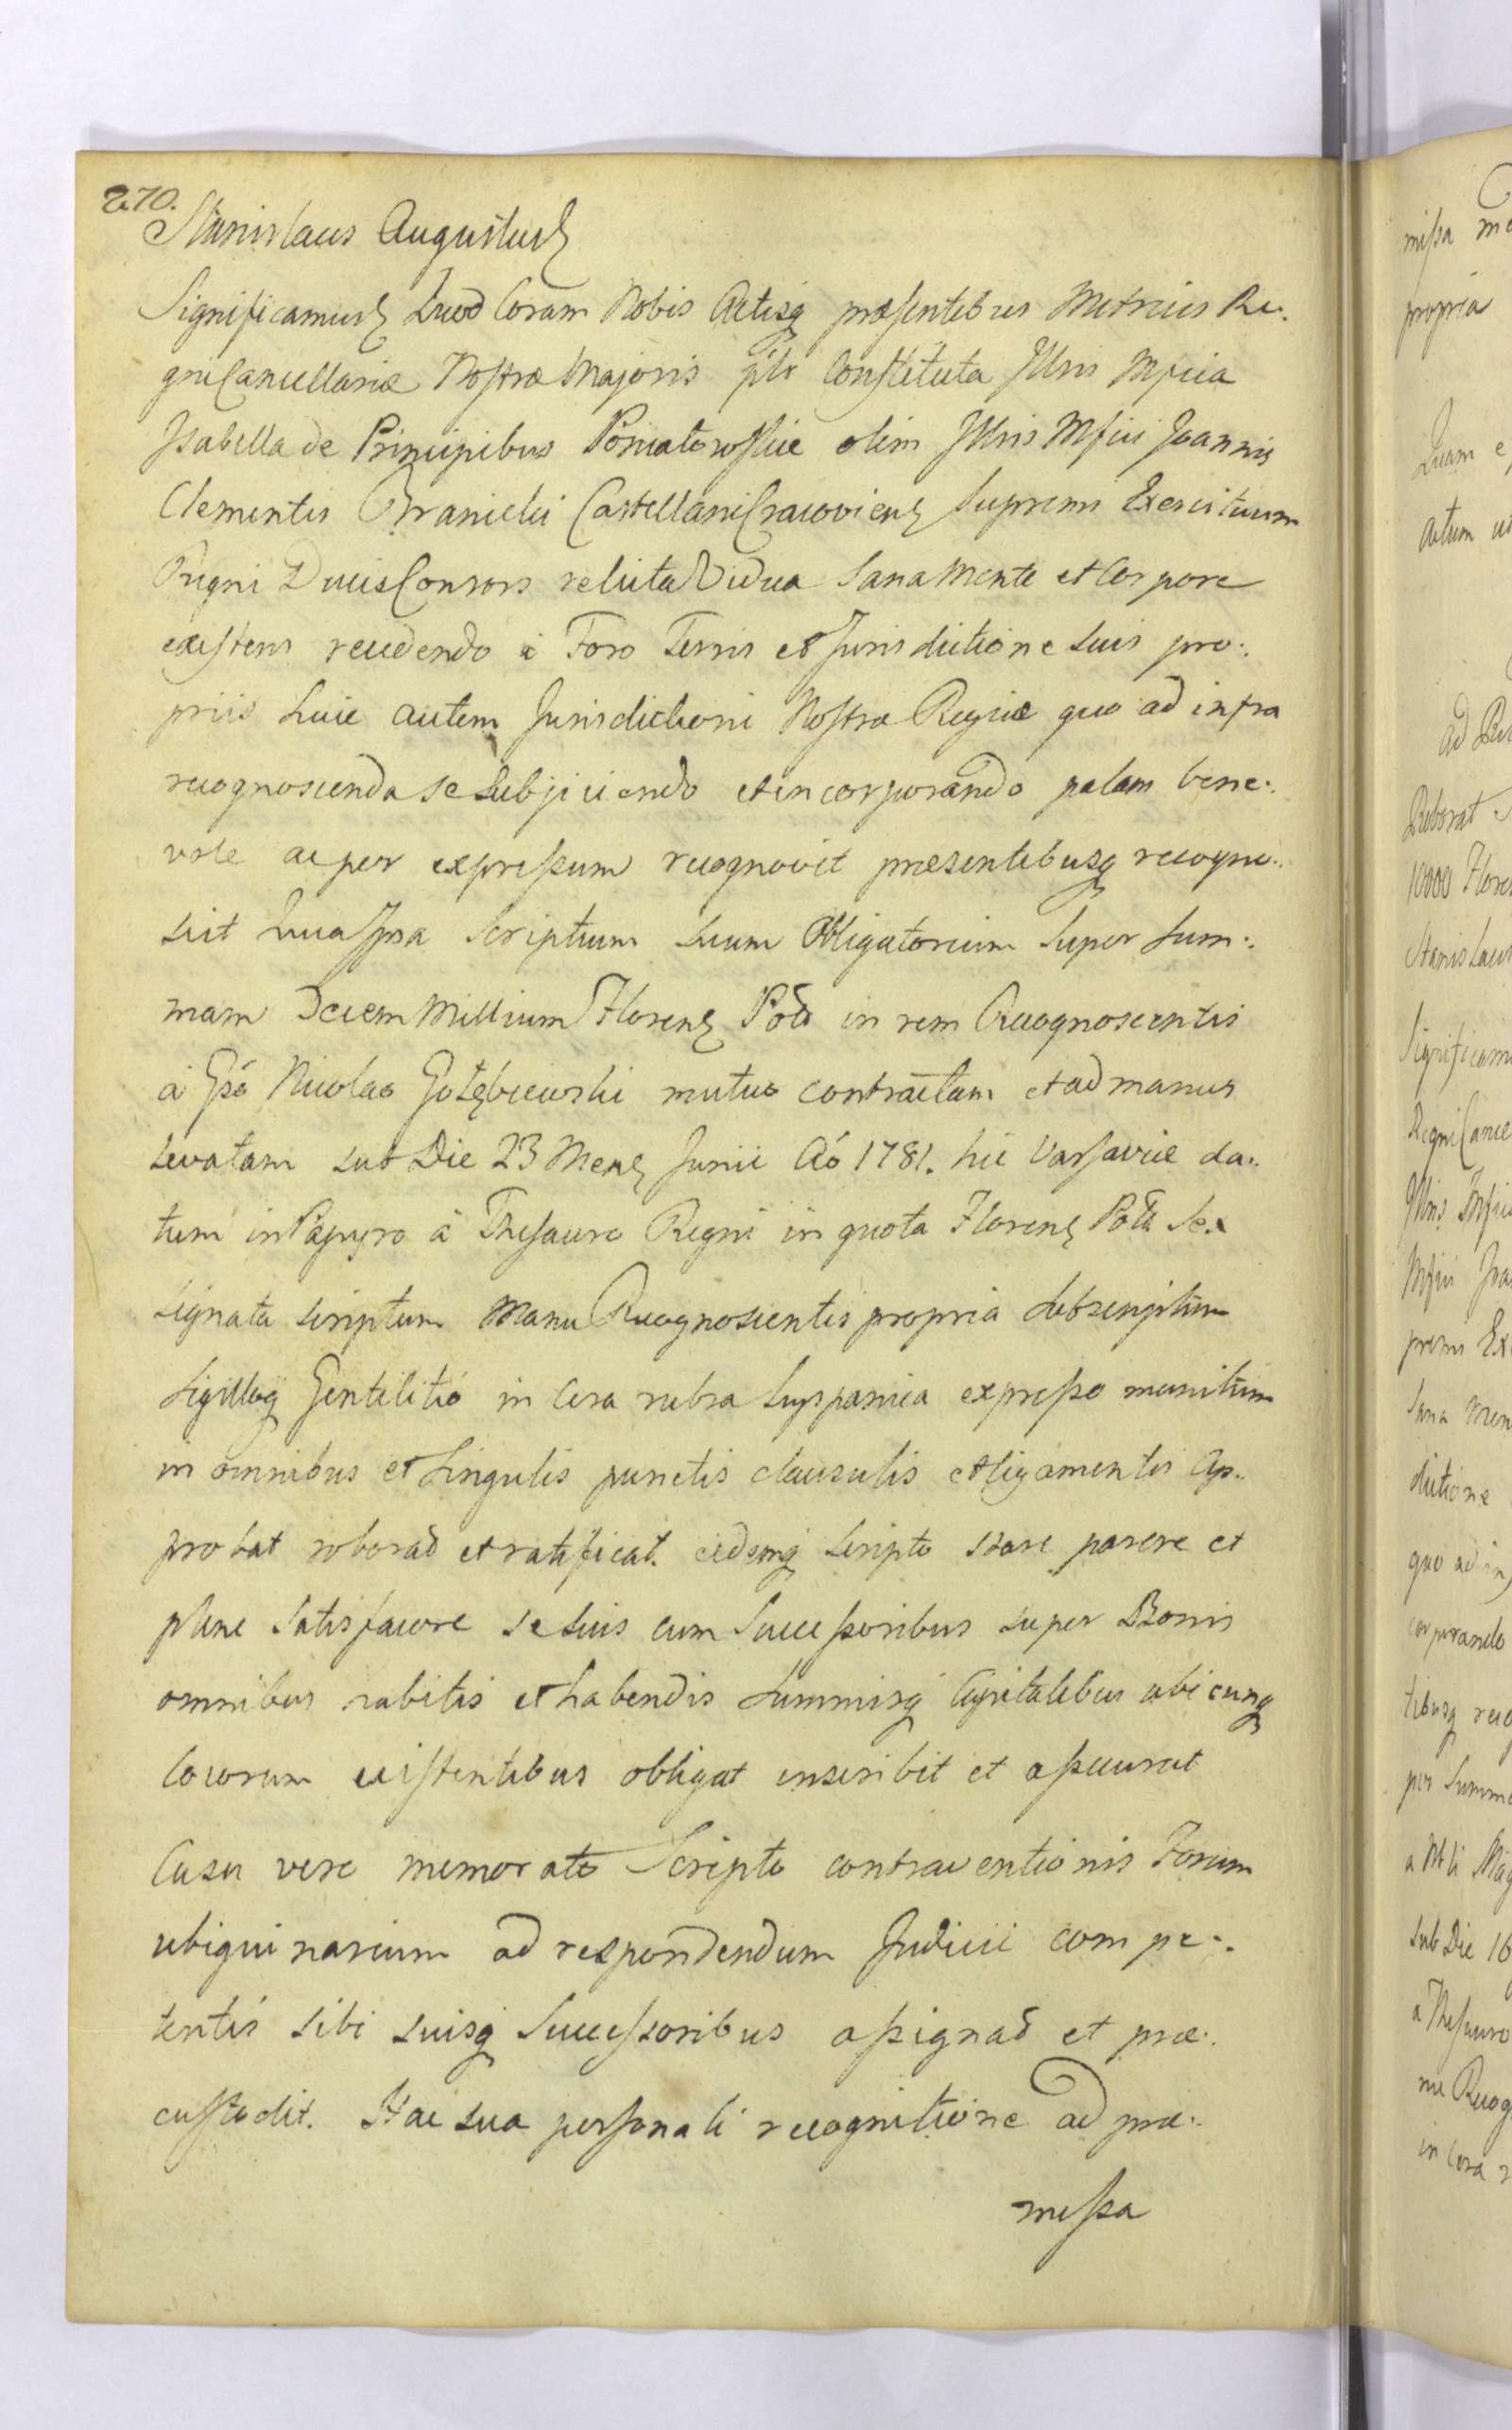 270.
Stanislaus Augustus
Significamus Quod Coram Nobis Actisq præsentibus Metrices Re:
gni Cancellariæ Nostræ Majoris plr Constituta Jllris Mfica
Jsabella de Principibus Poniatowskie olim Jllris Mfici Joannis
Clementis Branicki Castellani Cracoviens Supremi Exercituum
Regni Ducis Consors relicta Vidua Sana Mente et Corpore
existens recedendo á Foro Terris et Jurisdictione suis pro:
priis huic autem Jurisdictioni Nostræ Regiæ quo ad infra
recognoscenda se subjiciendo et incorporando palam bene:
vole ac per expressum recognovit præsentibusq recogno:
scit Quia Jpsa Scriptum suum Obligatorium Super Sum:
mam Decem Millium Florens Pold in rem Recognoscentis
á Gso Nicolao Gołębiewski mutuo contractam et ad manus
levatam sub Die 23 Mens Junii Aó 1781. hic Varsaviæ da:
tum in Papyro á Thesauro Regni in quota Florens Poll Sex
signata scriptum Manu Recognoscentis propria subscriptum
Sigilloq Gentilitió in Cera rubra hyspanica expresso munitum
in omnibus et singulis punctis clausulis et ligamentis Ap:
probat roborad et ratificat. eidemq Scripto stare parere et
plene satisfacere se suis cum Successoribus super Bonis
omnibus habitis et habendis Summisq Capitalibus ubicunq
locorum existentibus obligat inscribit et assecurat
Casu vero memorato Scripto contraventionis Forum
ubiquinarium ad respondendum Judicii compe:
tentis sibi suisq Successoribus assignad et præ:
custodit. Hac sua personali recognitione ad præ:
missa
missa
propria
Quam
Actum
ad
Roborat
10000
Stanislaus